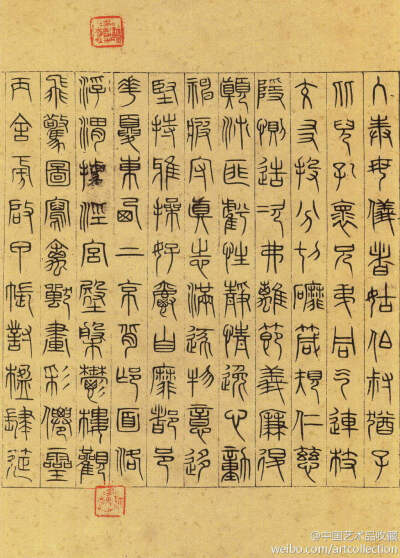 入奉母儀者姑伯叔猶子
比兒孔懷兄弟同气連枝
交友投分切磨箴規仁慈
隱惻造次弗離節義廉退
顛沛匪虧性靜情逸心動
神疲守真志滿逐物意移
堅持雅操好爵自靡都邑
華夏東西二京背邙面洛
浮渭據涇宮殿盤鬱樓觀
飛驚圖寫禽獸畫彩僊靈
丙舍旁啟甲帳對楹肆筵
@中国艺术品收藏
weibo.com/artcollection